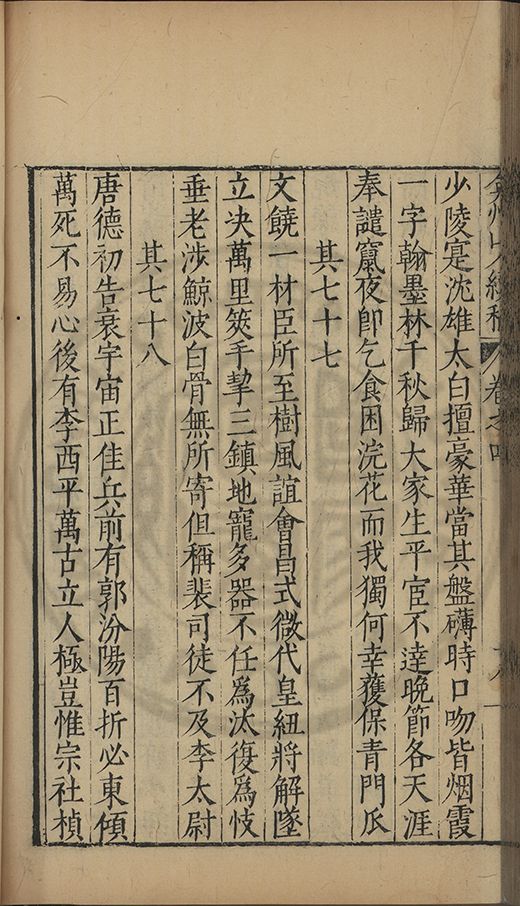 弇州山人續稿 卷之四
少陵寔沈雄太白擅豪華當其盤礴時口吻皆烟霞
一字翰墨林千秋歸大家生平宦不達晚節各天涯
奉譴竄夜郎乞食困浣花而我獨何幸蒦保青門瓜
其七十七
文饒一材臣所至樹風誼會昌式微代皇紐將解墜
立决萬里筴手挈三鎮地寵多器不任爲汰復爲忮
垂老涉鯨波白骨無所寄但稱裴司徒不及李太尉
其七十八
唐德初告衰宇宙正佳兵前有郭汾陽百折必東傾
萬死不易心後有李西平萬古立人極豈惟宗社楨